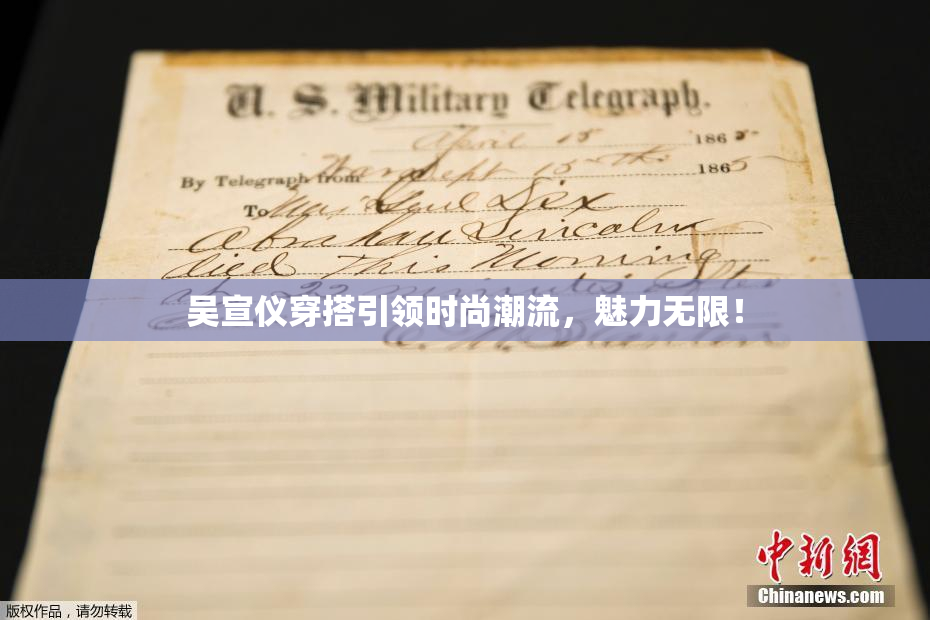 U. S. Military Telegraph.
April 15 1865
By Telegraph from War Dept 15th 1865
To Maj Genl Dix
Abraham Lincoln
died This Morning
at 22 minutes after
吴宣仪穿搭引领时尚潮流，魅力无限！
中新网
Chinanews.com
版权作品，请勿转载